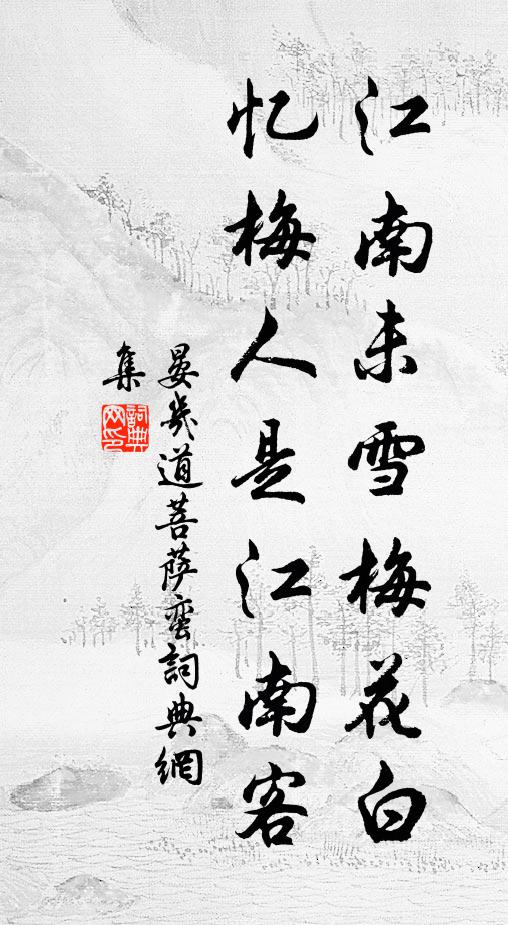 江南未雪梅花白
忆梅人是江南客
晏幾道菩萨蛮詞典網
集
詞典网印